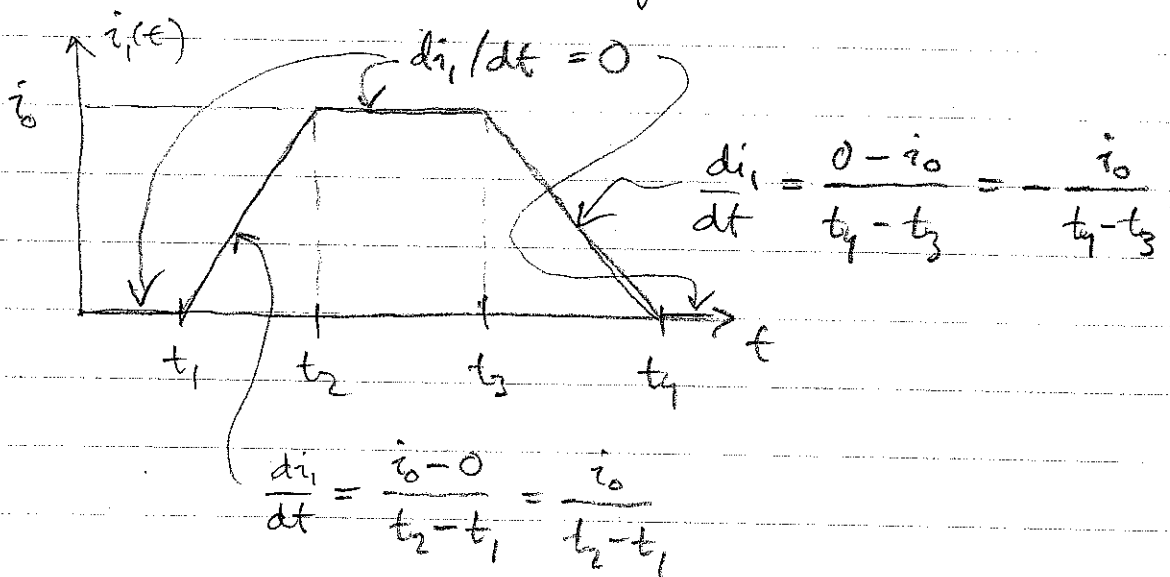 i₁(t)
di₁/dt = 0
i₀
di₁/dt = (0 - i₀)/(t₄ - t₃) = - i₀/(t₄ - t₃)
t₁ t₂ t₃ t₄ t
di₁/dt = (i₀ - 0)/(t₂ - t₁) = i₀/(t₂ - t₁)